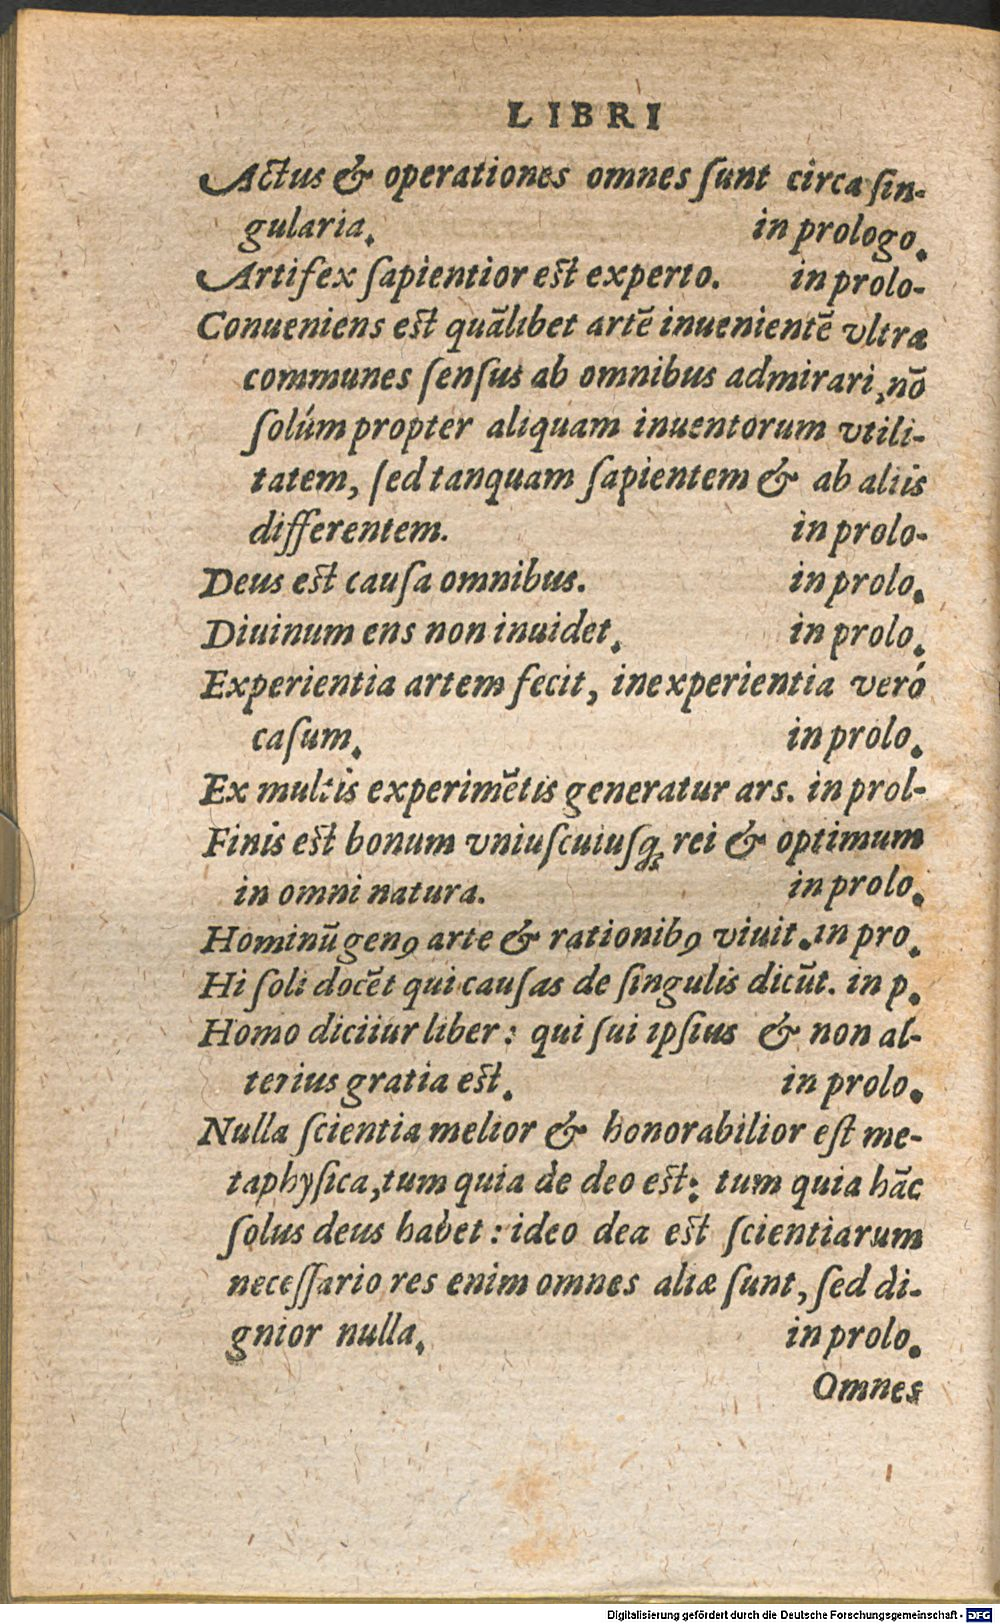 LIBRI
Actus & operationes omnes sunt circa sin-
gularia. in prologo.
Artifex sapientior est experto. in prolo-
Conueniens est quālibet artē inuenientē vltra
communes sensus ab omnibus admirari, nō
solùm propter aliquam inuentorum vtili-
tatem, sed tanquam sapientem & ab aliis
differentem. in prolo-
Deus est causa omnibus. in prolo.
Diuinum ens non inuidet. in prolo.
Experientia artem fecit, inexperientia veró
casum. in prolo.
Ex multis experimētis generatur ars. in prol-
Finis est bonum vniuscuiusq; rei & optimum
in omni natura. in prolo.
Hominū genꝰ arte & rationibꝰ viuit. in pro.
Hi soli docēt qui causas de singulis dicūt. in p.
Homo diciiur liber: qui sui ipsius & non al-
terius gratia est. in prolo.
Nulla scientia melior & honorabilior est me-
taphysica, tum quia de deo est: tum quia hāc
solus deus habet: ideo dea est scientiarum
necessario res enim omnes aliæ sunt, sed di-
gnior nulla. in prolo.
Omnes
Digitalisierung gefördert durch die Deutsche Forschungsgemeinschaft - DFG